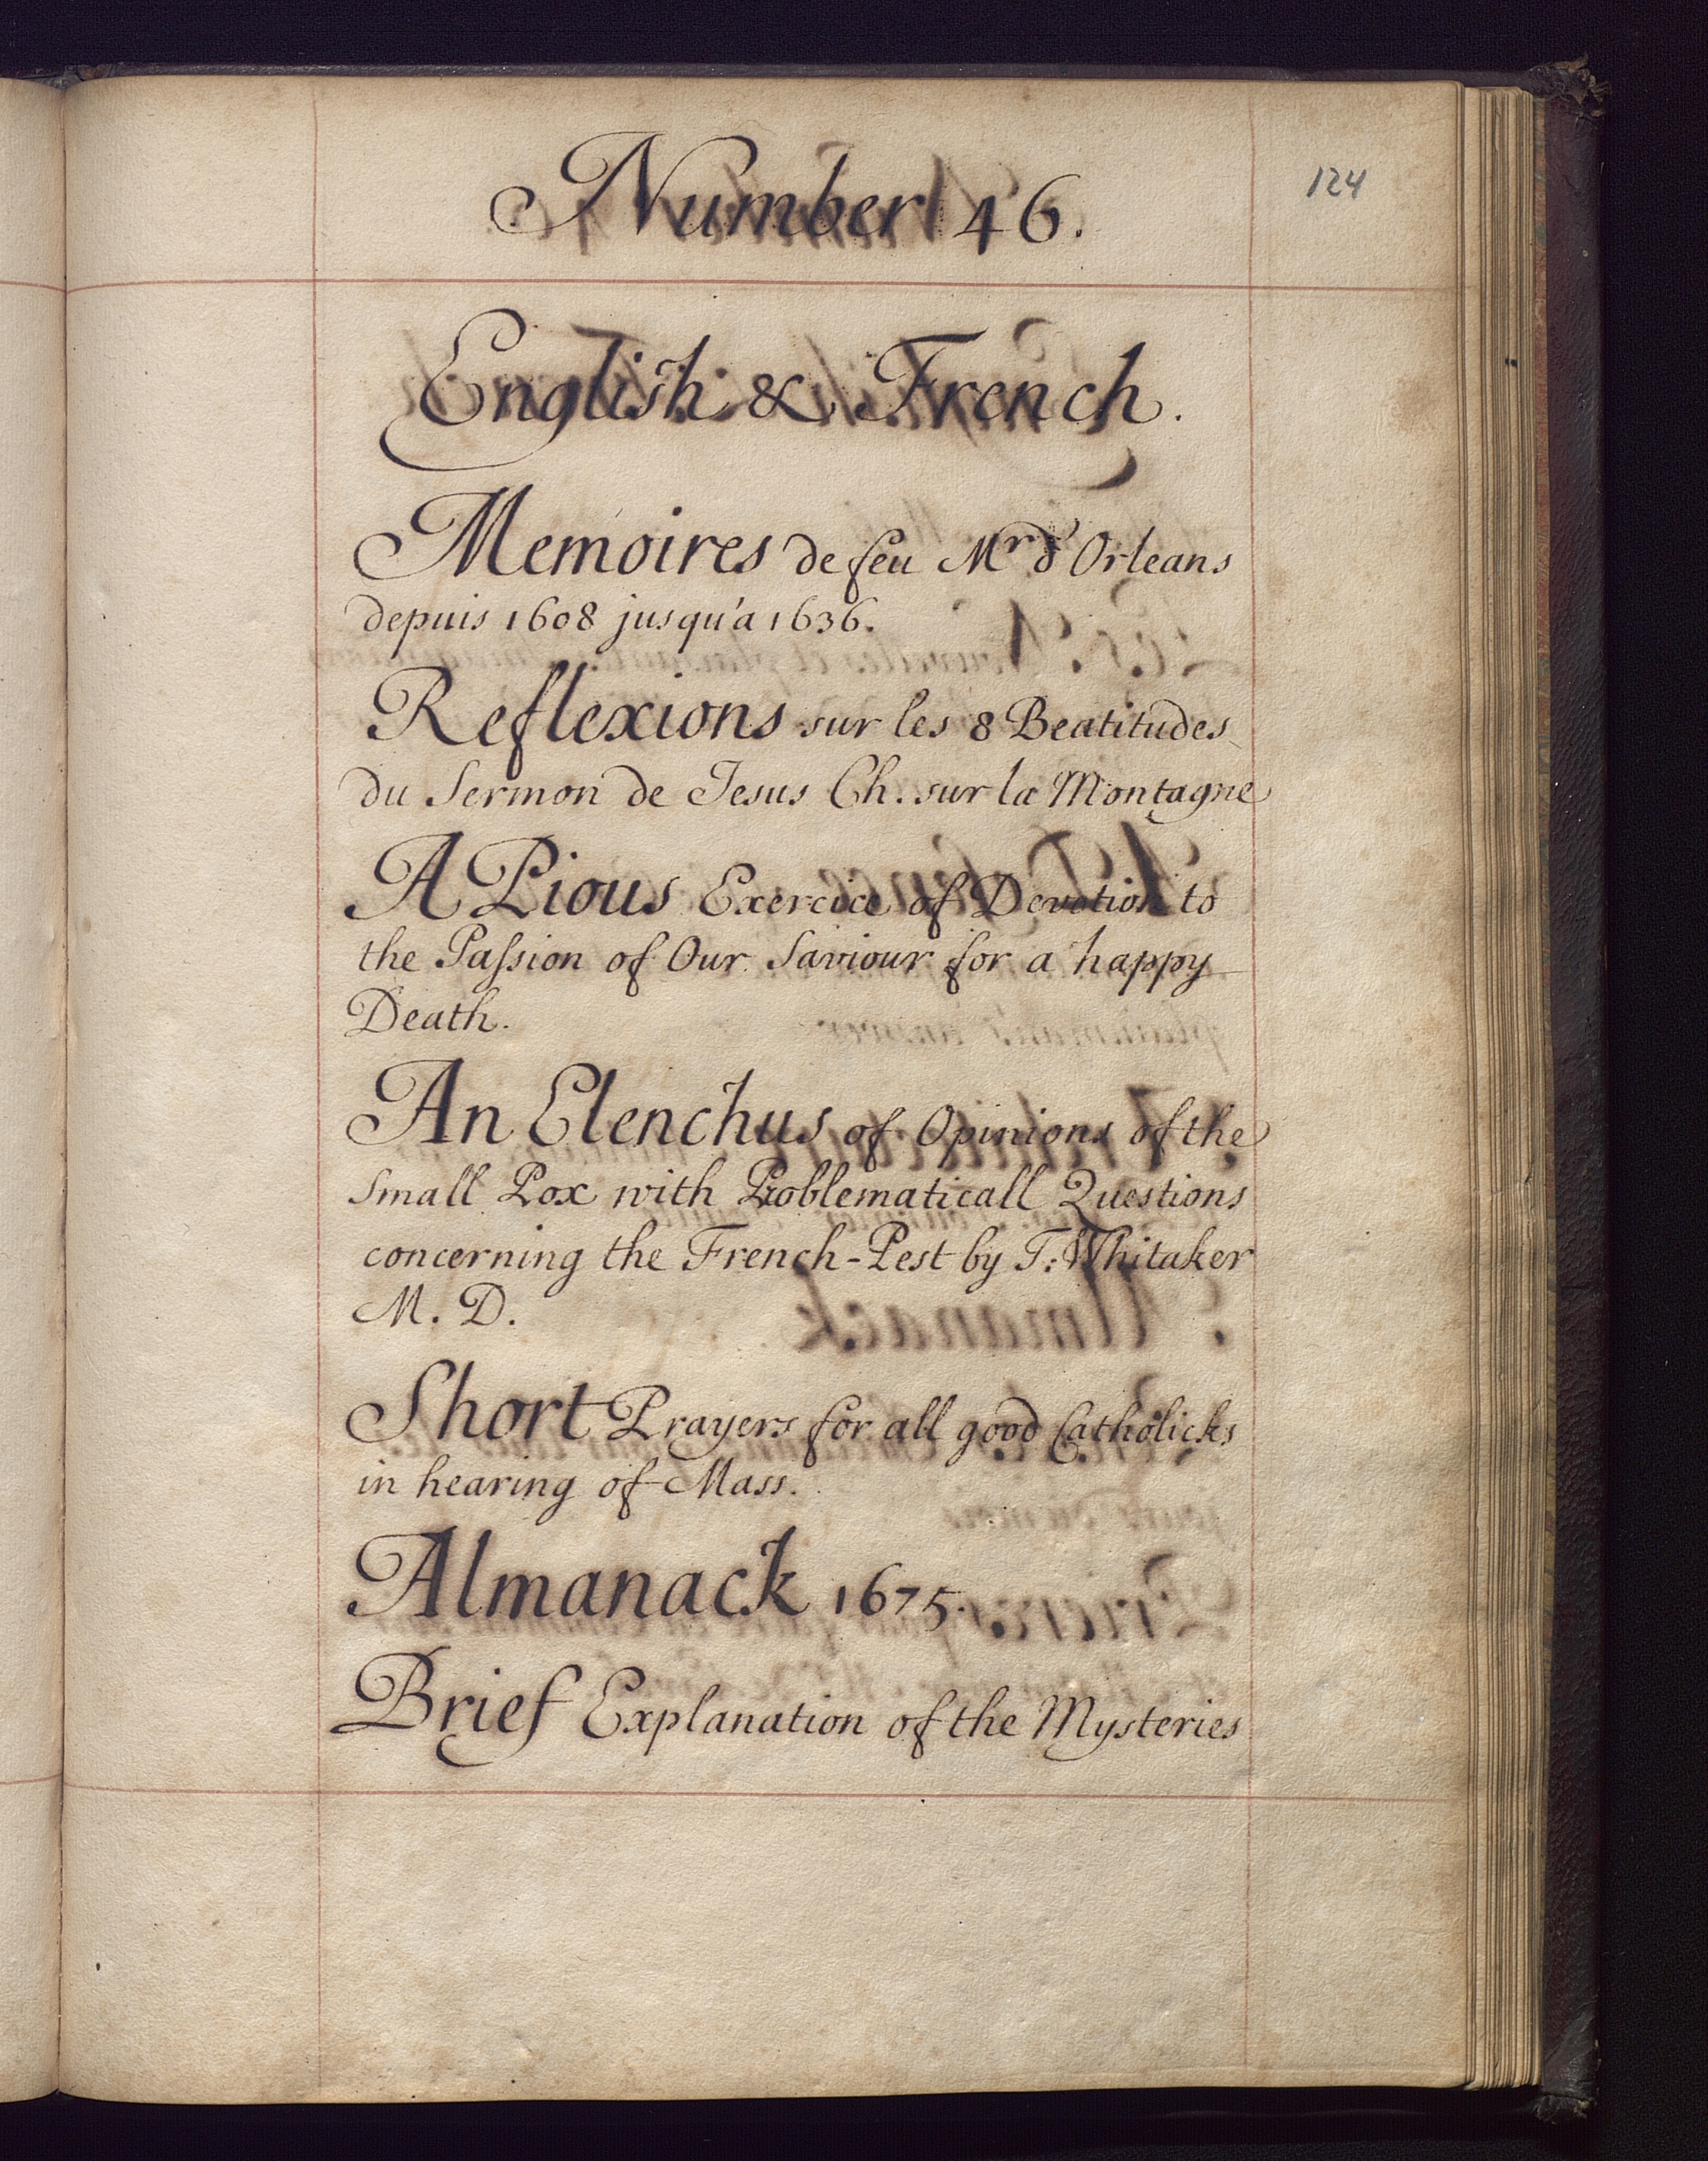 Number 46.
124
English & French.
Memoires de feu Mr d'Orleans
depuis 1608 jusqu'a 1636.
Reflexions sur les 8 Beatitudes
du Sermon de Jesus Ch. sur la Montagne
A Pious Exercice of Devotion to
the Paſsion of Our Saviour for a happy
Death.
An Elenchus of Opinions of the
Small Pox with Problematicall Questions
concerning the French-Pest by T: Whitaker
M. D.
Short Prayers for all good Catholicks
in hearing of Mass.
Almanack 1675.
Brief Explanation of the Mysteries